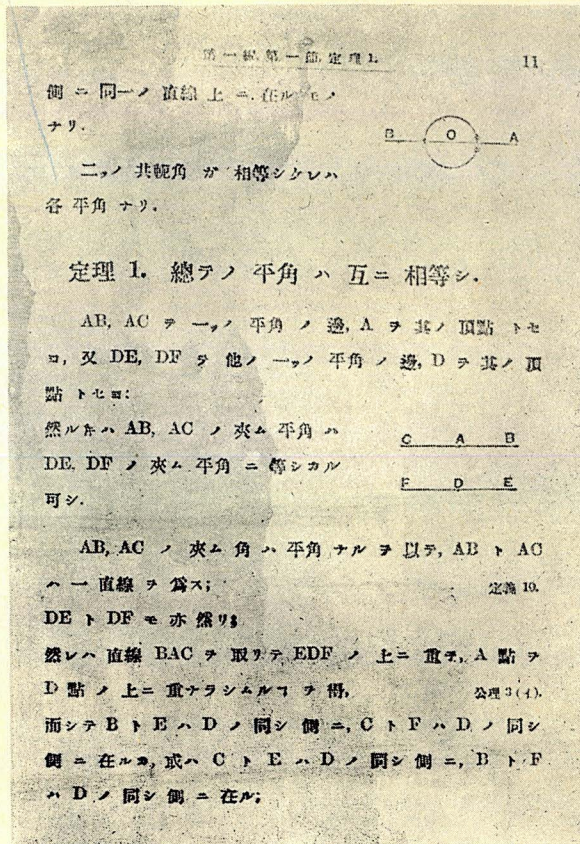 第一編 第一節 定理 1. 11
側ニ同一ノ直線上ニ在ルモノ
ナリ.
B O A
二ッノ共軛角ガ相等シケレハ
各平角ナリ.
定理 1. 總テノ平角ハ互ニ相等シ.
AB, AC ヲ一ッノ平角ノ邊, A ヲ其ノ頂點トセ
ヨ, 又 DE, DF ヲ他ノ一ッノ平角ノ邊, D ヲ其ノ頂
點トセヨ:
然ルトキハ AB, AC ノ夾ム平角ハ
DE, DF ノ夾ム平角ニ等シカル
可シ.
C A B
F D E
AB, AC ノ夾ム角ハ平角ナルヲ以テ, AB ト AC
ハ一直線ヲ爲ス; 定義 10.
DE ト DF モ亦然リ;
然レハ直線 BAC ヲ取リテ EDF ノ上ニ重子, A 點ヲ
D 點ノ上ニ重ナラシムルヿヲ得, 公理 3(イ).
而シテ B ト E ハ D ノ同シ側ニ, C ト F ハ D ノ同シ
側ニ在ルカ, 或ハ C ト E ハ D ノ同シ側ニ, B ト F
ハ D ノ同シ側ニ在ル;